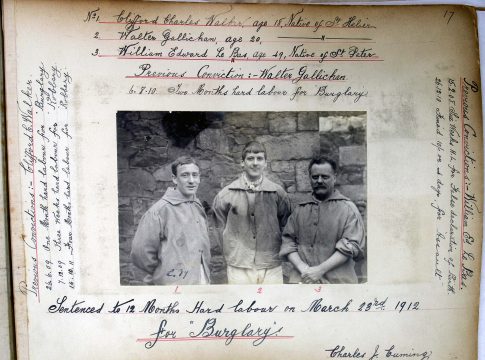 17
No 1, Clifford Charles Walker, age 18, Native of St Helier
2. Walter Gallichan, age 20, "
3. William Edward Le Bas, age 49, Native of St Peter.
Previous Conviction :- Walter Gallichan
6.8.10 Two Months hard labour for Burglary
Previous Convictions :- Clifford C. Walker
26.6.09 One Month hard labour for Burglary
7.12.09 Three Weeks hard labour for Robbery
Four Months hard labour for Robbery
Previous Convictions :- William Ed Le Bas.
Six Weeks H.L. for False declaration of Birth
26.12.10 Fined 10/- or 4 days for Assault
1 2 3
Sentenced to 12 Months Hard labour on March 23rd 1912
for "Burglary"
Charles J. Cuming